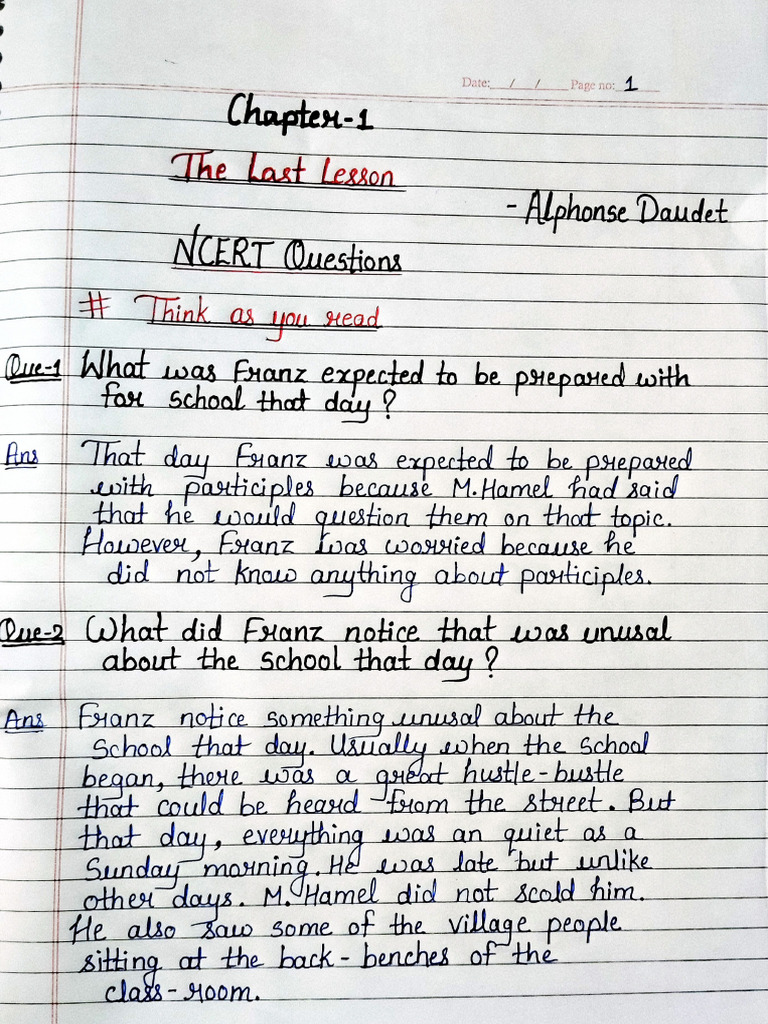 Date: / / Page no: 1
Chapter-1
The Last Lesson
- Alphonse Daudet
NCERT Questions
# Think as you read
Que-1 What was Franz expected to be prepared with
for school that day?
Ans That day Franz was expected to be prepared
with participles because M.Hamel had said
that he would question them on that topic.
However, Franz was worried because he
did not know anything about participles.
Que-2 What did Franz notice that was unusal
about the school that day?
Ans Franz notice something unusal about the
School that day. Usually when the school
began, there was a great hustle-bustle
that could be heard from the street. But
that day, everything was an quiet as a
Sunday morning. He was late but unlike
other days. M. Hamel did not scold him.
He also saw some of the village people
sitting at the back-benches of the
class-room.